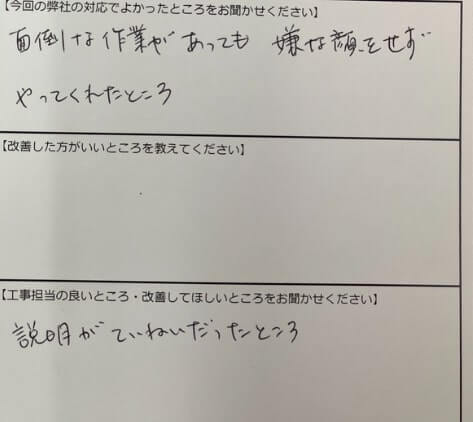 【今回の弊社の対応でよかったところをお聞かせください】
面倒な作業があっても 嫌な顔をせず
やってくれたところ
【改善した方がいいところを教えてください】
【工事担当の良いところ・改善してほしいところをお聞かせください】
説明がていねいだったところ